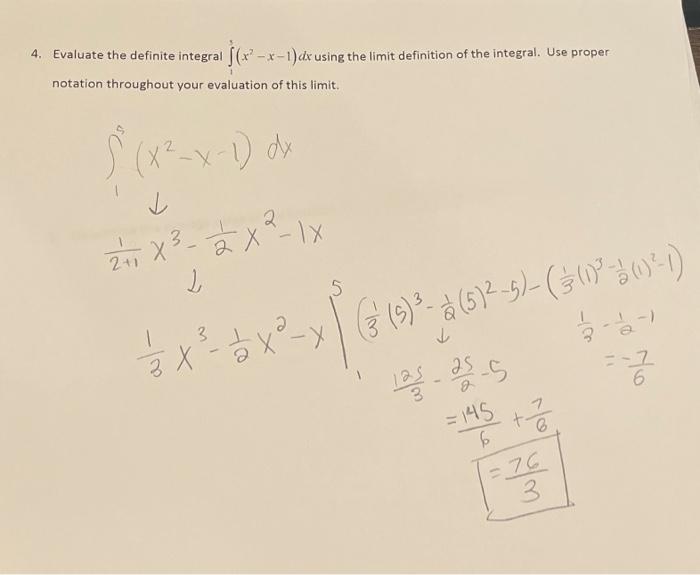 4. Evaluate the definite integral ∫₁⁵(x² − x − 1)dx using the limit definition of the integral. Use proper
notation throughout your evaluation of this limit.
∫₁⁵ (x² − x − 1) dx
↓
1/(2+1) x³ − 1/2 x² − 1x
↓
1/3 x³ − 1/2 x² − x |₁⁵ (1/3 (5)³ − 1/2 (5)² − 5) − (1/3 (1)³ − 1/2 (1)² − 1)
↓
125/3 − 25/2 − 5
1/3 − 1/2 − 1
= −7/6
= 145/6 + 7/6
= 76/3